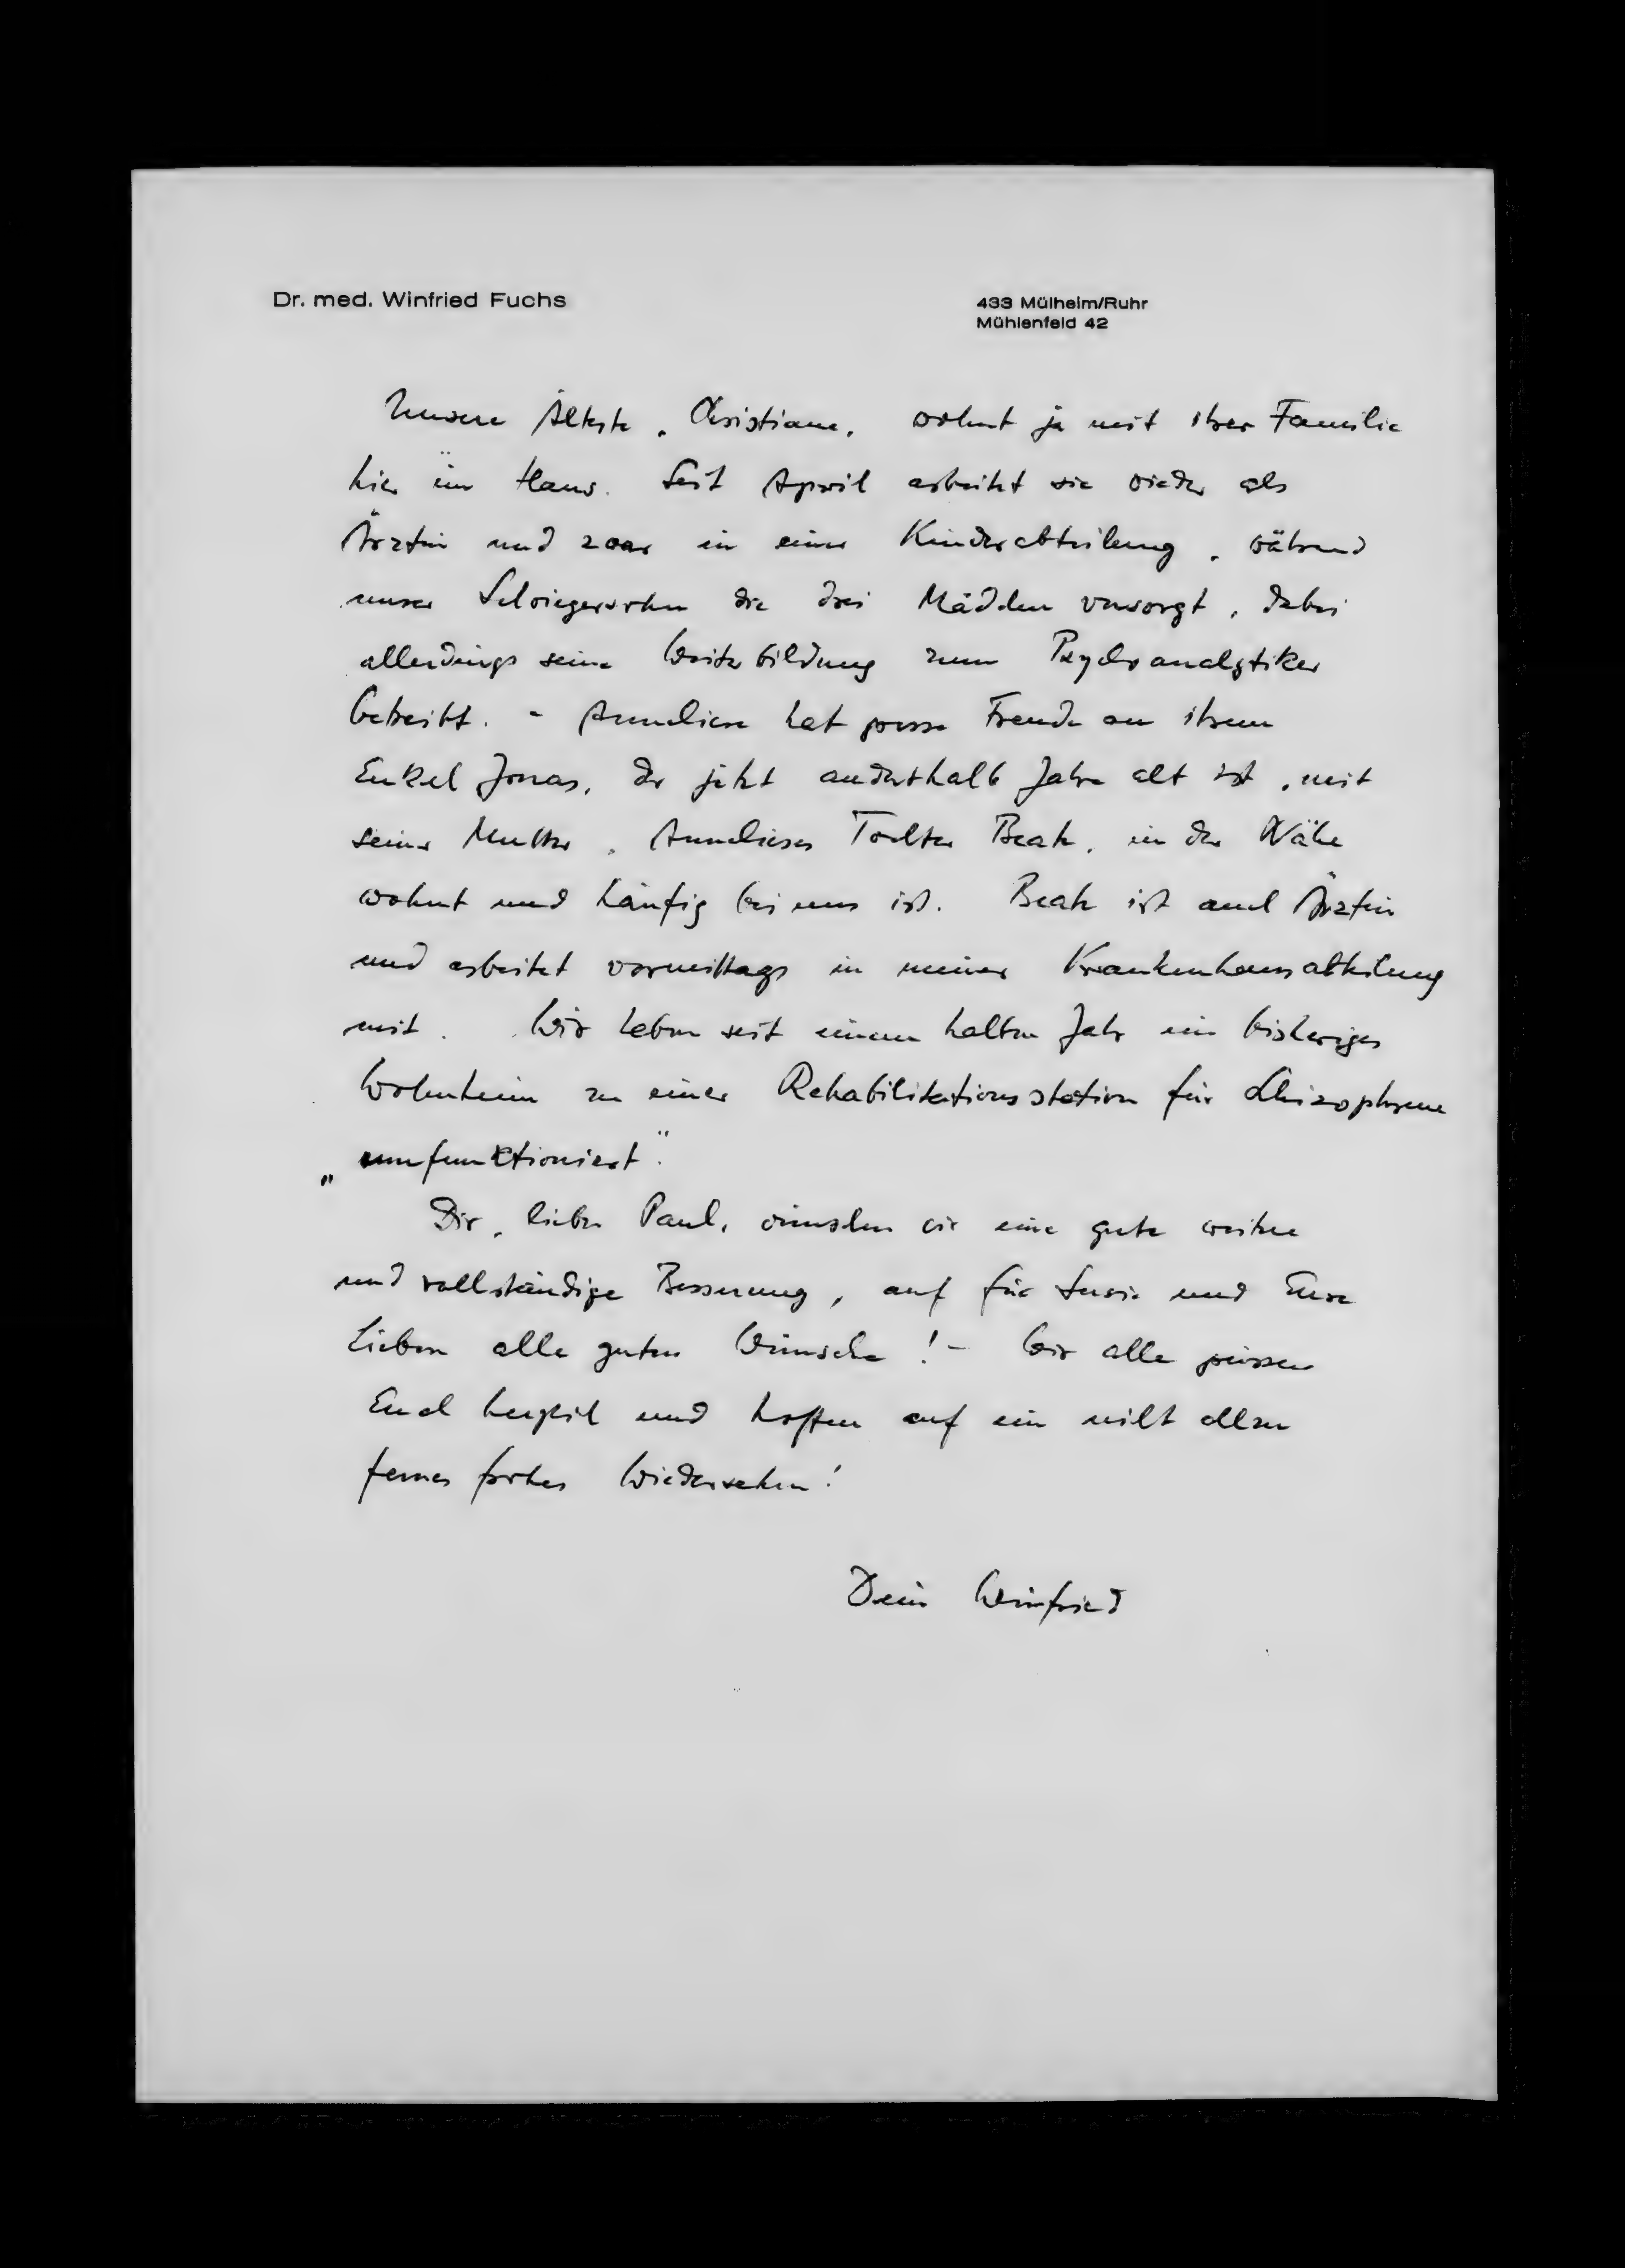 Dr. med. Winfried Fuchs
433 Mülheim/Ruhr
Mühlenfeld 42
Unsere Älteste, Christiane, wohnt ja mit ihrer Familie
hier im Haus. Seit April arbeitet sie wieder als
Ärztin und zwar in einer Kinderabteilung, während
unser Schwiegersohn die drei Mädchen versorgt, dabei
allerdings seine Weiterbildung zum Psychoanalytiker
betreibt. - Anneliese hat grosse Freude an ihrem
Enkel Jonas, der jetzt anderthalb Jahre alt ist, mit
seiner Mutter, Annelieses Tochter Beate, in der Nähe
wohnt und häufig bei uns ist. Beate ist auch Ärztin
und arbeitet vormittags in meiner Krankenhausabteilung
mit. Wir haben seit einem halben Jahr ein bisheriges
Wohnheim zu einer Rehabilitationsstation für Schizophrene
„umfunktioniert".
Dir, lieber Paul, wünschen wir eine gute weitere
und vollständige Besserung, auch für Susie und Eure
Lieben alle guten Wünsche! - Wir alle grüssen
Euch herzlich und hoffen auf ein nicht allzu
fernes frohes Wiedersehen!
Dein Winfried